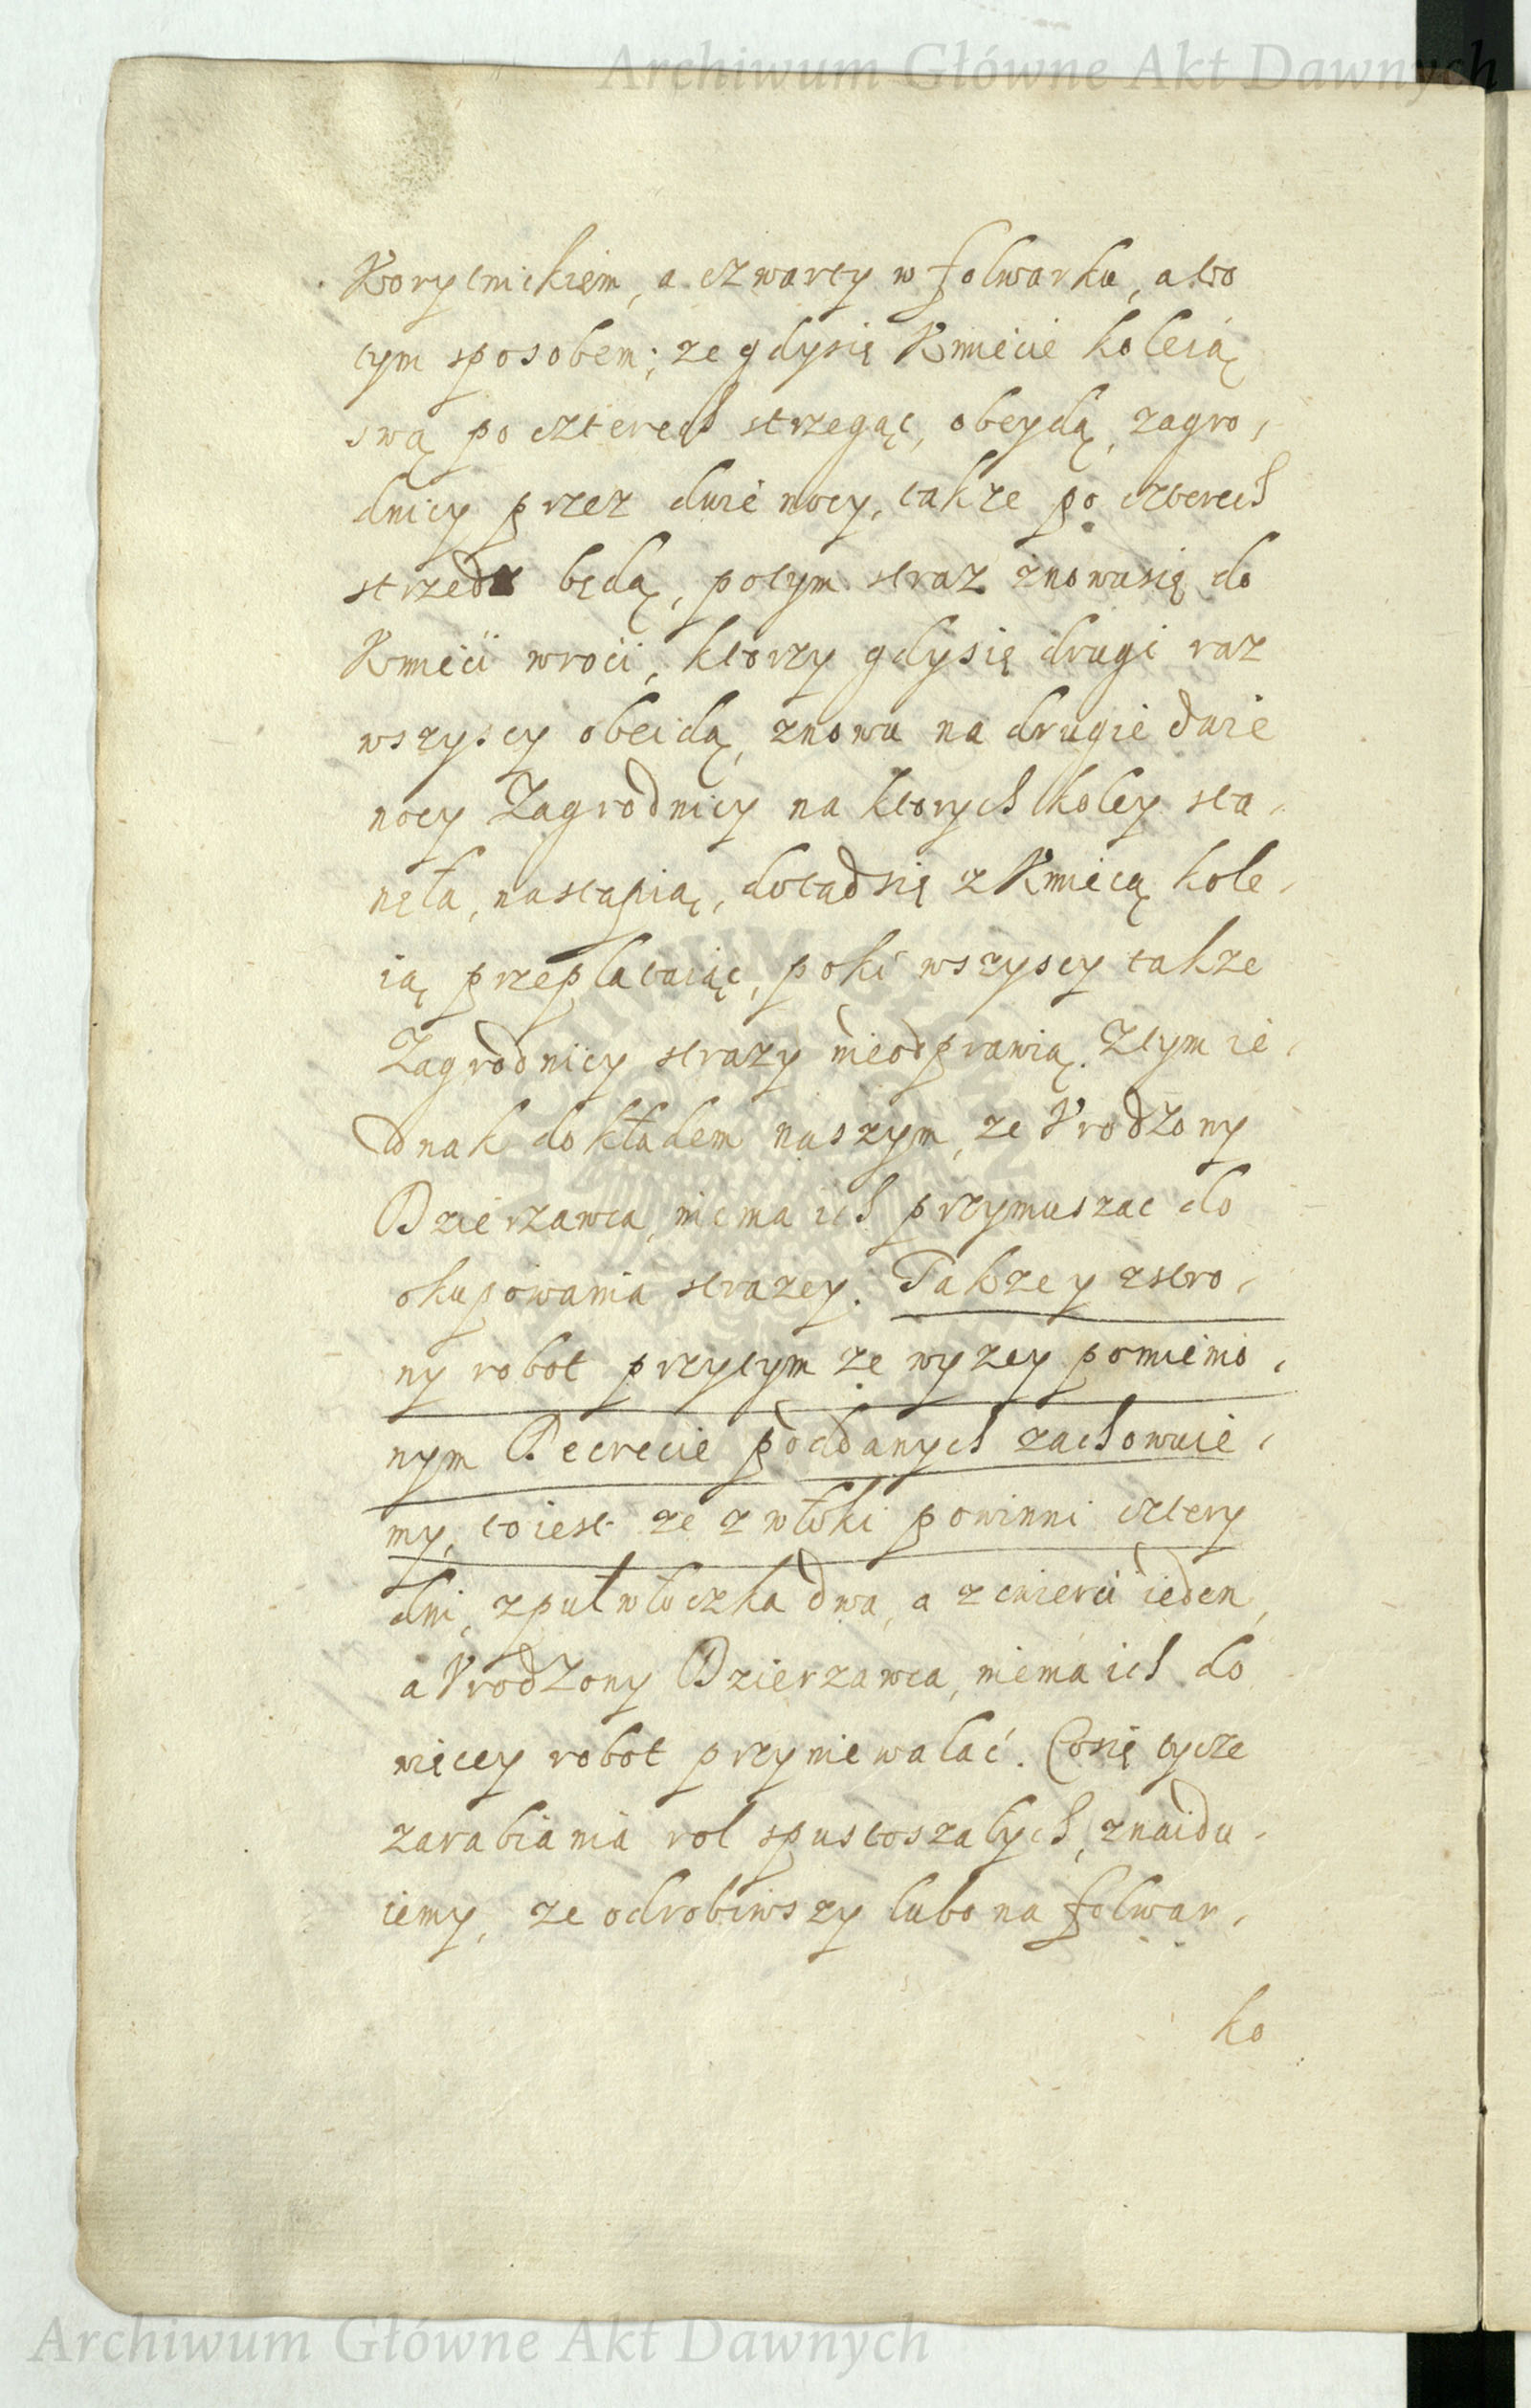 Archiwum Główne Akt Dawnych
Korytnickięm, a czwarty w folwarku, a to
tym sposobem; ze gdysię Kmiecie koleią
swą po czterech strzegąc, obeydą, zagro,
dnicy przez dwie nocy, takze po czterech
strzedz będą, potym straz znowusię do
Kmieci wroci, ktorzy gdysię drugi raz
wszyscy obeidą, znowu na drugie dwie
nocy Zagrodnicy na ktorych koley sta,
nęła, nastąpią, dotądsię z Kmiecą kole,
ią przeplataiąc, poki wszyscy takze
Zagrodnicy strazy nieodprawią. Ztym ie,
dnak dokładem naszym, ze Vrodzony
Dzierzawca, niema ich przymuszac do
okupowania strazey. Takze y zstro,
ny robot przytym ze wyzey pomienio,
nym Decrecie poddanych zachowuie,
my, toiest ze zwłoki powinni cztery
dni, zpułwłoczka dwa, a zcwierci ieden,
a Vrodzony Dzierzawca, niema ich do
więcey robot przyniewalać. Cosię tycze
zarabiania rol spustoszałych, znaidu,
iemy, ze odrobiwszy lubo na folwar,
ko
Archiwum Główne Akt Dawnych